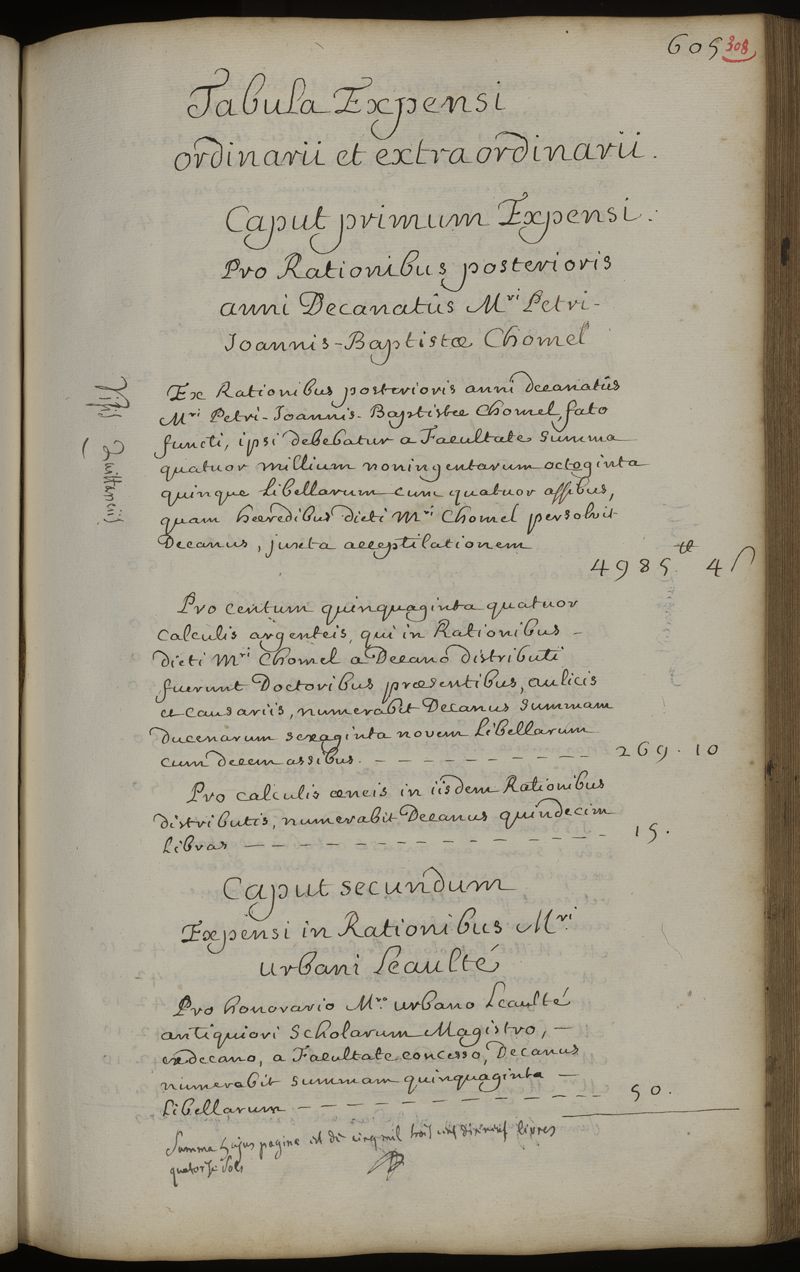 605 308
Tabula Expensi
ordinarii et extraordinarii.
Caput primum Expensi.
Pro Rationibus posterioris
anni Decanatûs Mri Petri-
Joannis-Baptistæ Chomel
Visis Quittanciis
Ex Rationibus posterioris anni decanatûs
Mri Petri-Joannis-Baptistæ Chomel fato
functi, ipsi debebatur a Facultate Summa
quatuor millium noningentarum octoginta
quinque Libellarum cum quatuor assibus,
quam hæredibus dicti Mri Chomel persolvit
Decanus, juxta acceptilationem
4985tt 4s
Pro centum quinquaginta quatuor
Calculis argenteis, qui in Rationibus -
dicti Mri Chomel a Decano distributi
fuerunt Doctoribus præsentibus, aulicis
et Causariis, numerabit Decanus Summam
ducenarum sexaginta novem Libellarum
cum decem assibus. - - - - - - - - - - 269. 10
Pro calculis æneis in iisdem Rationibus
distributis, numerabit Decanus quindecim
Libras - - - - - - - - - - - - - - 15.
Caput secundum
Expensi in Rationibus Mri
urbani Leaulté
Pro honorario Mro urbano Leaulté
antiquiori Scholarum Magistro, -
exdecano, a Facultate concesso, Decanus
numerabit summam quinquaginta -
Libellarum - - - - - - - - - - - 50.
Summa hujus paginæ est de cinq mil trois cent dixneuf livres
quatorze sols